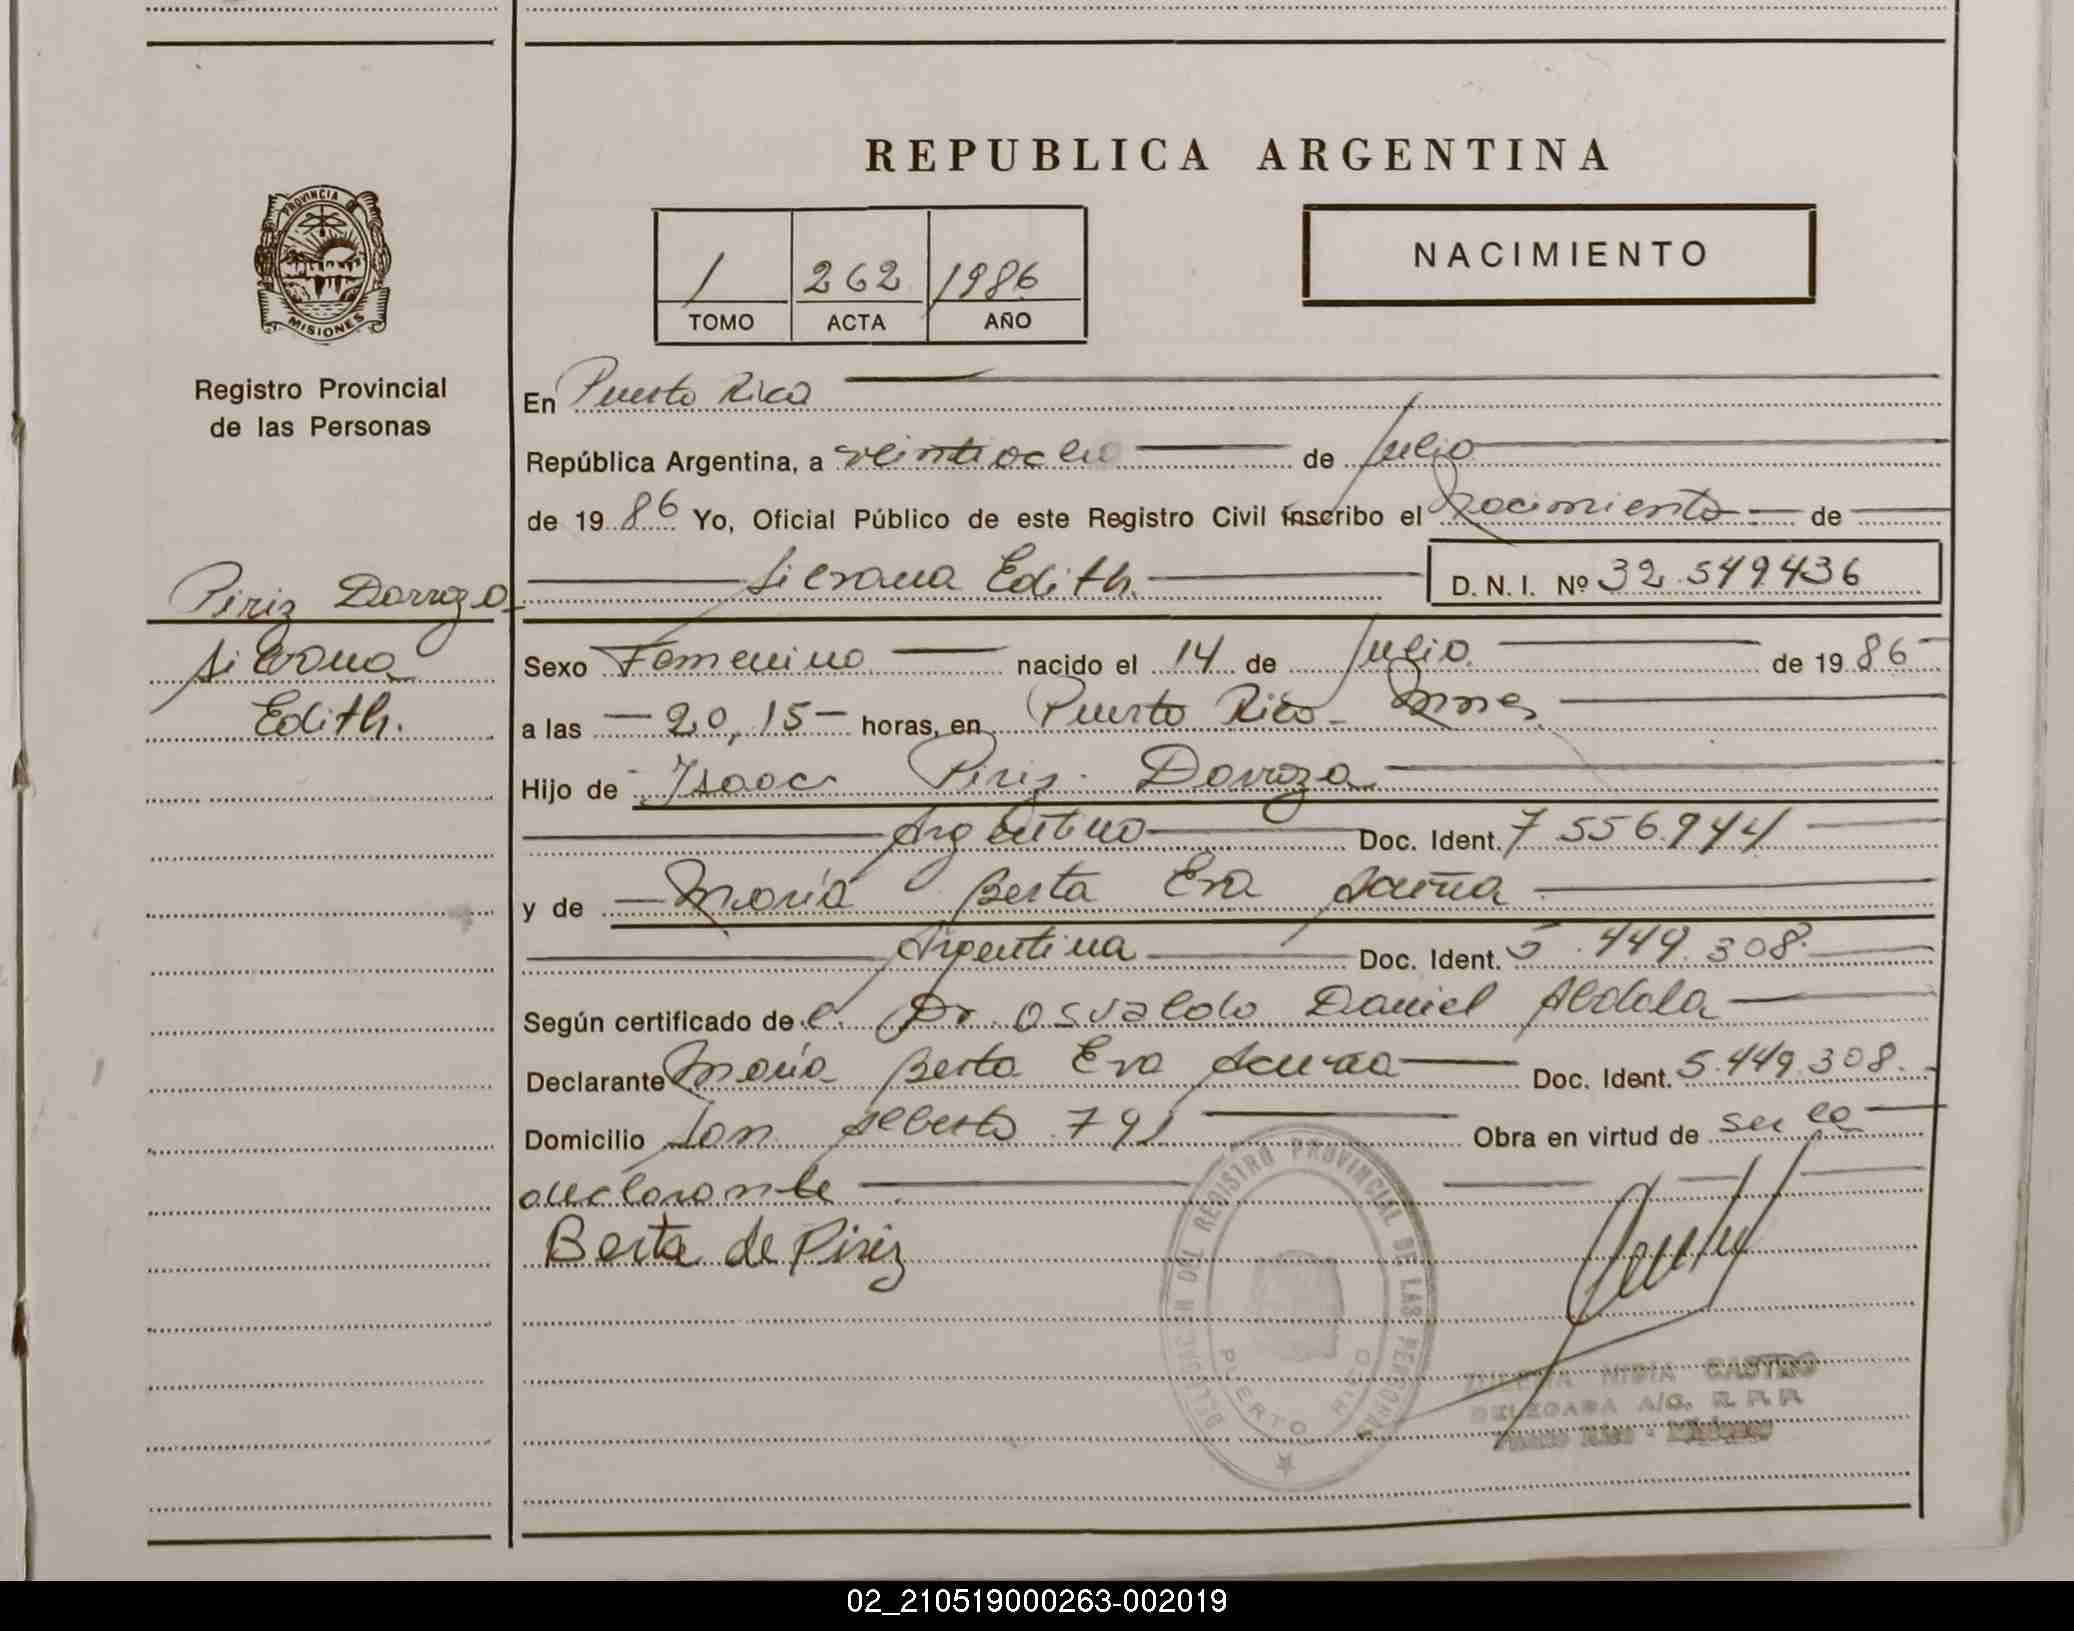 REPUBLICA ARGENTINA
PROVINCIA DE
MISIONES
Registro Provincial
de las Personas
1 262 1986
TOMO ACTA AÑO
NACIMIENTO
En Puerto Rico
República Argentina, a veintiocho de Julio
de 1986 Yo, Oficial Público de este Registro Civil inscribo el nacimiento de
Silvana Edith. D. N. I. Nº 32.549436
Piriz Dorrozo
Silvana
Edith.
Sexo Femenino nacido el 14 de Julio de 1986
a las 20,15 horas, en Puerto Rico - Mnes.
Hijo de Isaac Piriz Dorroza
Argentino Doc. Ident. 7 556.944
y de María Berta Eva Acuña
Argentina Doc. Ident. 5.449.308
Según certificado de el Dr. Osvaldo Daniel Aldola
Declarante María Berta Eva Acuña Doc. Ident. 5.449.308.
Domicilio San Alberto 791 Obra en virtud de ser la
declarante
Berta de Piriz
DELEGACION DEL REGISTRO PROVINCIAL DE LAS PERSONAS
PUERTO RICO
NIDIA CASTRO
DELEGADA A/C. R. P. P.
Puerto Rico - Misiones
02_210519000263-002019